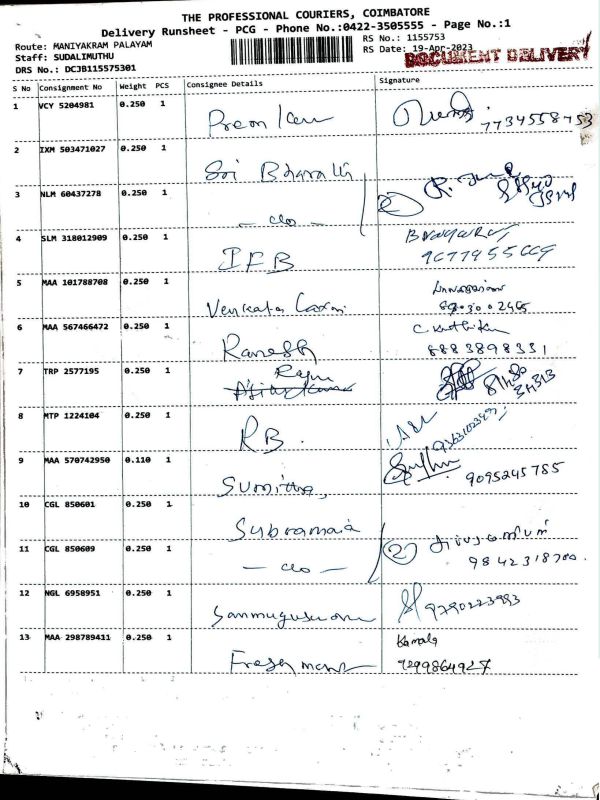 THE PROFESSIONAL COURIERS, COIMBATORE
Delivery Runsheet - PCG - Phone No.:0422-3505555 - Page No.:1
Route: MANIYAKRAM PALAYAM RS No.: 1155753
Staff: SUDALIMUTHU RS Date: 19-Apr-2023
DRS No.: DCJB115575301 DOCUMENT DELIVERY
S No Consignment No Weight PCS Consignee Details Signature
1 VCY 5204981 0.250 1
Prem 7734558753
2 IXM 503471027 0.250 1
Sri Bharathi
3 NLM 60437278 0.250 1
- do - 2
4 SLM 318012909 0.250 1
IFB
5 MAA 101788708 0.250 1
Venkata Laxmi
6 MAA 567466472 0.250 1
Ramesh 8883898331
7 TRP 2577195 0.250 1
Raju
8 MTP 1224104 0.250 1
RB.
9 MAA 570742950 0.110 1
Sumithra, 9095245785
10 CGL 850601 0.250 1
11 CGL 850609 0.250 1
- do - 2 9842318700.
12 NGL 6958951 0.250 1
9790223993
13 MAA 298789411 0.250 1 Kamala
9299864927